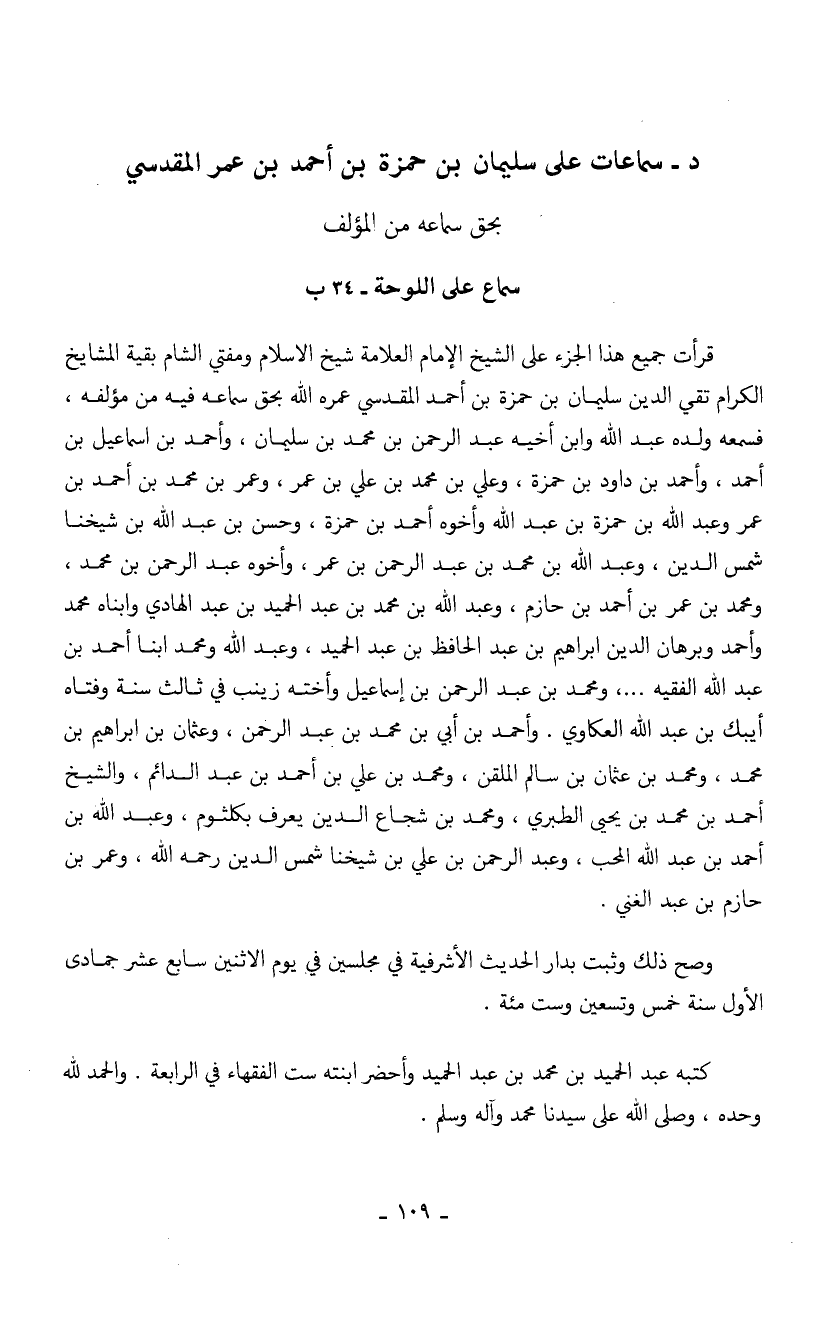 د ـ سماعات على سليمان بن حمزة بن أحمد بن عمر المقدسي
بحق سماعه من المؤلف
سماع على اللوحة ـ ٣٤ ب
قرأت جميع هذا الجزء على الشيخ الإمام العلامة شيخ الاسلام ومفتي الشام بقية المشايخ
الكرام تقي الدين سليمان بن حمزة بن أحمد المقدسي عمره الله بحق سماعه فيه من مؤلفه ،
فسمعه ولده عبد الله وابن أخيه عبد الرحمن بن محمد بن سليمان ، وأحمد بن اسماعيل بن
أحمد ، وأحمد بن داود بن حمزة ، وعلي بن محمد بن علي بن عمر ، وعمر بن محمد بن أحمد بن
عمر وعبد الله بن حمزة بن عبد الله وأخوه أحمد بن حمزة ، وحسن بن عبد الله بن شيخنا
شمس الدين ، وعبد الله بن محمد بن عبد الرحمن بن عمر ، وأخوه عبد الرحمن بن محمد ،
ومحمد بن عمر بن أحمد بن حازم ، وعبد الله بن محمد بن عبد الحميد بن عبد الهادي وابناه محمد
وأحمد وبرهان الدين ابراهيم بن عبد الحافظ بن عبد الحميد ، وعبد الله ومحمد ابنا أحمد بن
عبد الله الفقيه ...، ومحمد بن عبد الرحمن بن إسماعيل وأخته زينب في ثالث سنة وفتاه
أيبك بن عبد الله العكاوي . وأحمد بن أبي بن محمد بن عبد الرحمن ، وعثمان بن ابراهيم بن
محمد ، ومحمد بن عثمان بن سالم الملقن ، ومحمد بن علي بن أحمد بن عبد الدائم ، والشيخ
أحمد بن محمد بن يحيى الطبري ، ومحمد بن شجاع الدين يعرف بكلثوم ، وعبد الله بن
أحمد بن عبد الله المحب ، وعبد الرحمن بن علي بن شيخنا شمس الدين رحمه الله ، وعمر بن
حازم بن عبد الغني .
وصح ذلك وثبت بدار الحديث الأشرفية في مجلسين في يوم الاثنين سابع عشر جمادى
الأول سنة خمس وتسعين وست مئة .
كتبه عبد الحميد بن محمد بن عبد الحميد وأحضر ابنته ست الفقهاء في الرابعة . والحمد لله
وحده ، وصلى الله على سيدنا محمد وآله وسلم .
ـ ١٠٩ ـ